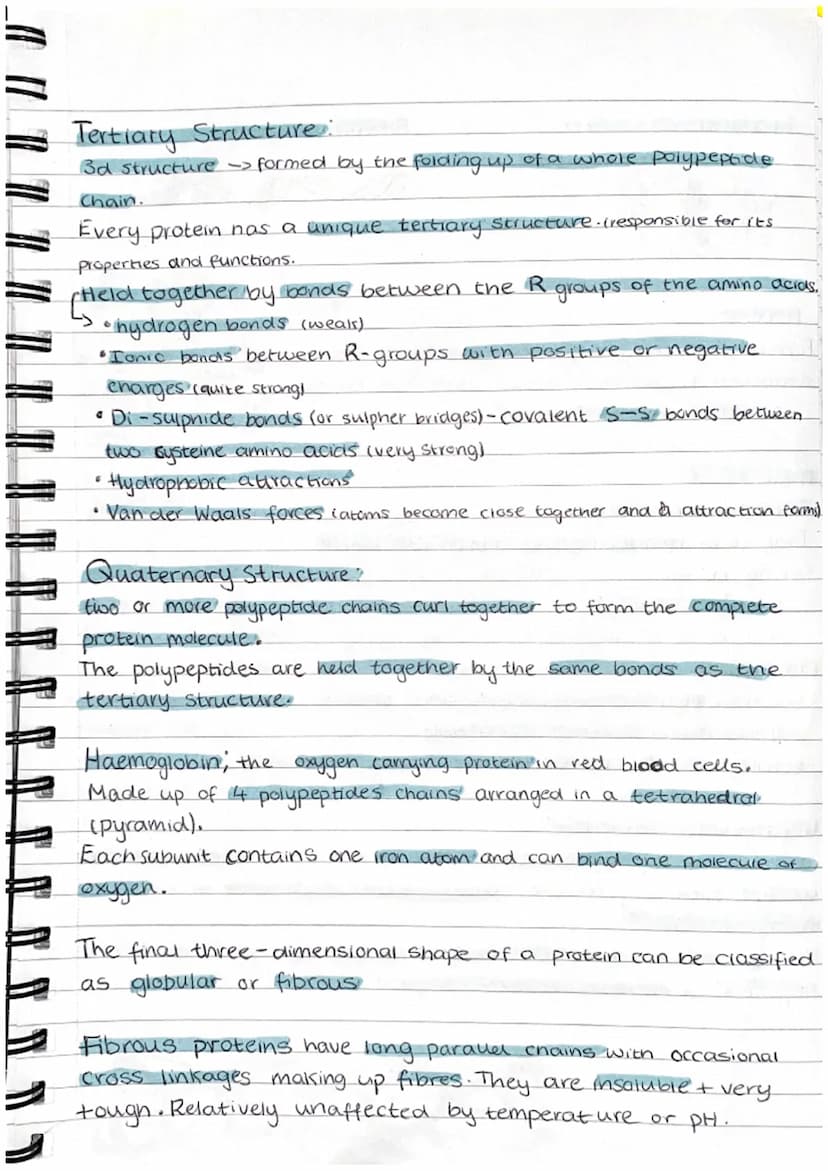 Tertiary Structure:
3d structure -> formed by the folding up of a whole polypeptide
chain.
Every protein has a unique tertiary structure. (responsible for its
properties and functions.
Held together by bonds between the R groups of the amino acids.
• hydrogen bonds (weak)
• Ionic bonds between R-groups with positive or negative
charges (quite strong)
• Di-sulphide bonds (or sulpher bridges) - covalent S-S bonds between
two cysteine amino acids (very strong)
• Hydrophobic attractions
• Van der Waals forces (atoms become close together and a attraction forms)
Quaternary Structure:
two or more polypeptide chains curl together to form the complete
protein molecule.
The polypeptides are held together by the same bonds as the
tertiary structure.
Haemoglobin; the oxygen carrying protein in red blood cells.
Made up of 4 polypeptides chains arranged in a tetrahedral
(pyramid).
Each subunit contains one iron atom and can bind one molecule of
oxygen.
The final three-dimensional shape of a protein can be classified
as globular or fibrous
Fibrous proteins have long parallel chains with occasional
cross linkages making up fibres. They are insoluble + very
tough. Relatively unaffected by temperature or pH.